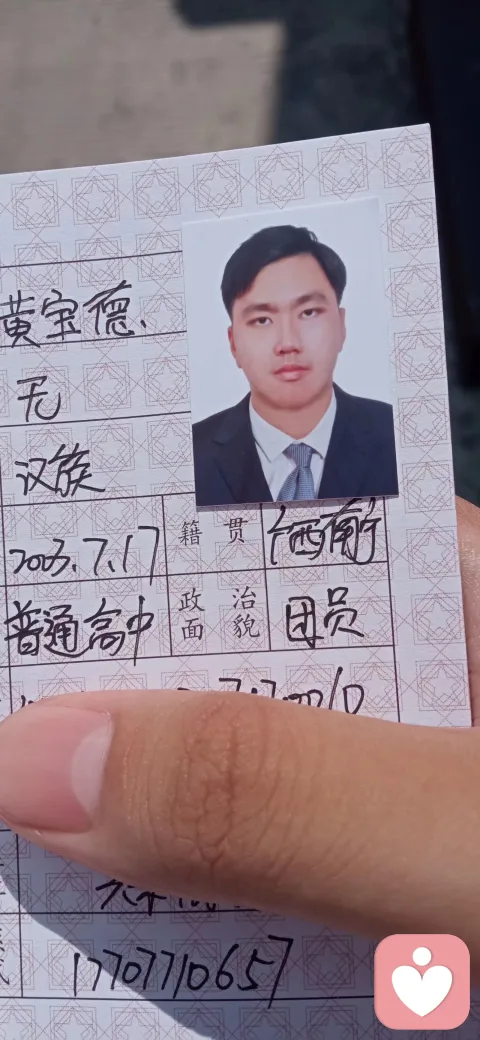 黄宝德
无
汉族
2003.7.17 籍贯 广西南宁
普通高中 政治面貌 团员
17707710657